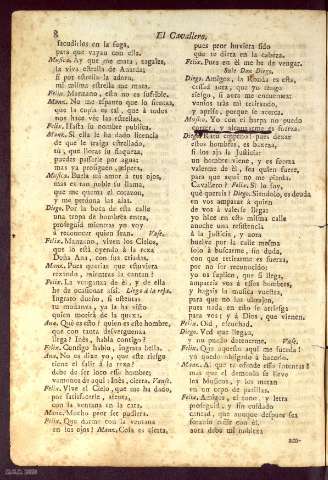 8
El Cavallero,
sacudirlos en la fuga,
para que vayan con ella.
Music. Ay que me mata, zagales,
la viva estrella de Anarda;
si por estrella la adoro,
mi misma estrella me mata.
Felix. Manzano, esto no es sufrible.
Manz. No me espanto que lo sientas,
que la copla es tal, que à todos
nos hace vèr las estrellas.
Felix. Hasta su nombre publica.
Manz. Si ella le ha dado licencia
de que le traiga estrellado,
tù, que lloras su fineza,
puedes passarte por agua
mas ya prosiguen, espera.
Music. Burla mi amor à tus ojos,
mas es tan noble su llama,
que me quema el corazon,
y me perdona las alas.
Dieg. Por la boca de esta calle
una tropa de hombres entra,
proseguid mientras yo voy
à reconocer quien sean. Vase.
Felix. Manzano, viven los Cielos,
que lo està oyendo à la rexa
Doña Ana, con sus criadas.
Manz. Pues querias que estuviera
rezando, mientras la cantan?
Felix. La venganza de ti, y de ella
he de ocasionar assi. Llega à la rexa.
Ingrato dueño, si esfuerzas
tu mudanza, ya la ha visto
quien morirà de la quexa.
Ana. Què es esto? quien es este hombre,
que con tanta desverguenza
llega? Inès, habla contigo?
Felix. Contigo hablo, ingrata bella.
Ana. No os digo yo, que este riesgo
tiene el salir à la rexa?
debe de ser loco este hombre;
vamonos de aqui: Inès, cierra. Vanse.
Felix. Vive el Cielo, que me ha dado,
por satisfacerle, sienta,
con la ventana en la cara.
Manz. Mucho peor ser pudiera.
Felix. Que darme con la ventana
en los ojos? Manz. Cosa es cierta,
pues peor huviera sido
que te diera en la cabeza.
Felix. Pues en èl me he de vengar.
Sale Don Diego.
Dieg. Amigos, la Ronda es esta,
cessad aora, que yo tengo
riesgo, si aora me encuentran:
venios tras mì retirando,
y aprisa, porque se acerca.
Music. Yo con el harpa no puedo
correr, y alcanzarme es fuerza.
estos hombres, es baxeza,
si los oìs la Justicia
un hombre viene, y es fuerza
valerme de èl, sea quien fuere,
para que aqui no me pierda.
Cavallero? Felix. Si lo soy,
què quereis? Dieg. Siendolo, es deuda
en vos amparar à quien
de vos à valerse llega:
yo hice en esta misma calle
anoche una resistencia
à la Justicia, y aora
huelve por la calle mesma
solo à buscarme, sin duda,
con que retirarme es fuerza,
por no ser reconocido:
yo os suplico, que si llega,
ampareis vos à estos hombres,
y hagais la musica vuestra,
para que no los ultrajen,
pues nada en esto se arriesga
para vos; y à Dios que vienen.
Felix. Oid, escuchad.
Dieg. Ved que llegan,
y no puedo detenerme. Vase.
Felix. Que aquesto aqui me suceda!
yo quedo obligado à hacerlo.
Manz. Ai que te ofende esso intentas?
mas que el demonio se lleve
los Musicos, y los metan
en un cepo de parillas.
Felix. Amigos, el tono, y letra
proseguid, y sin cuidado
cantad, que aunque despues sea
forzoso reñir con èl,
aora debo mi nobleza
am-